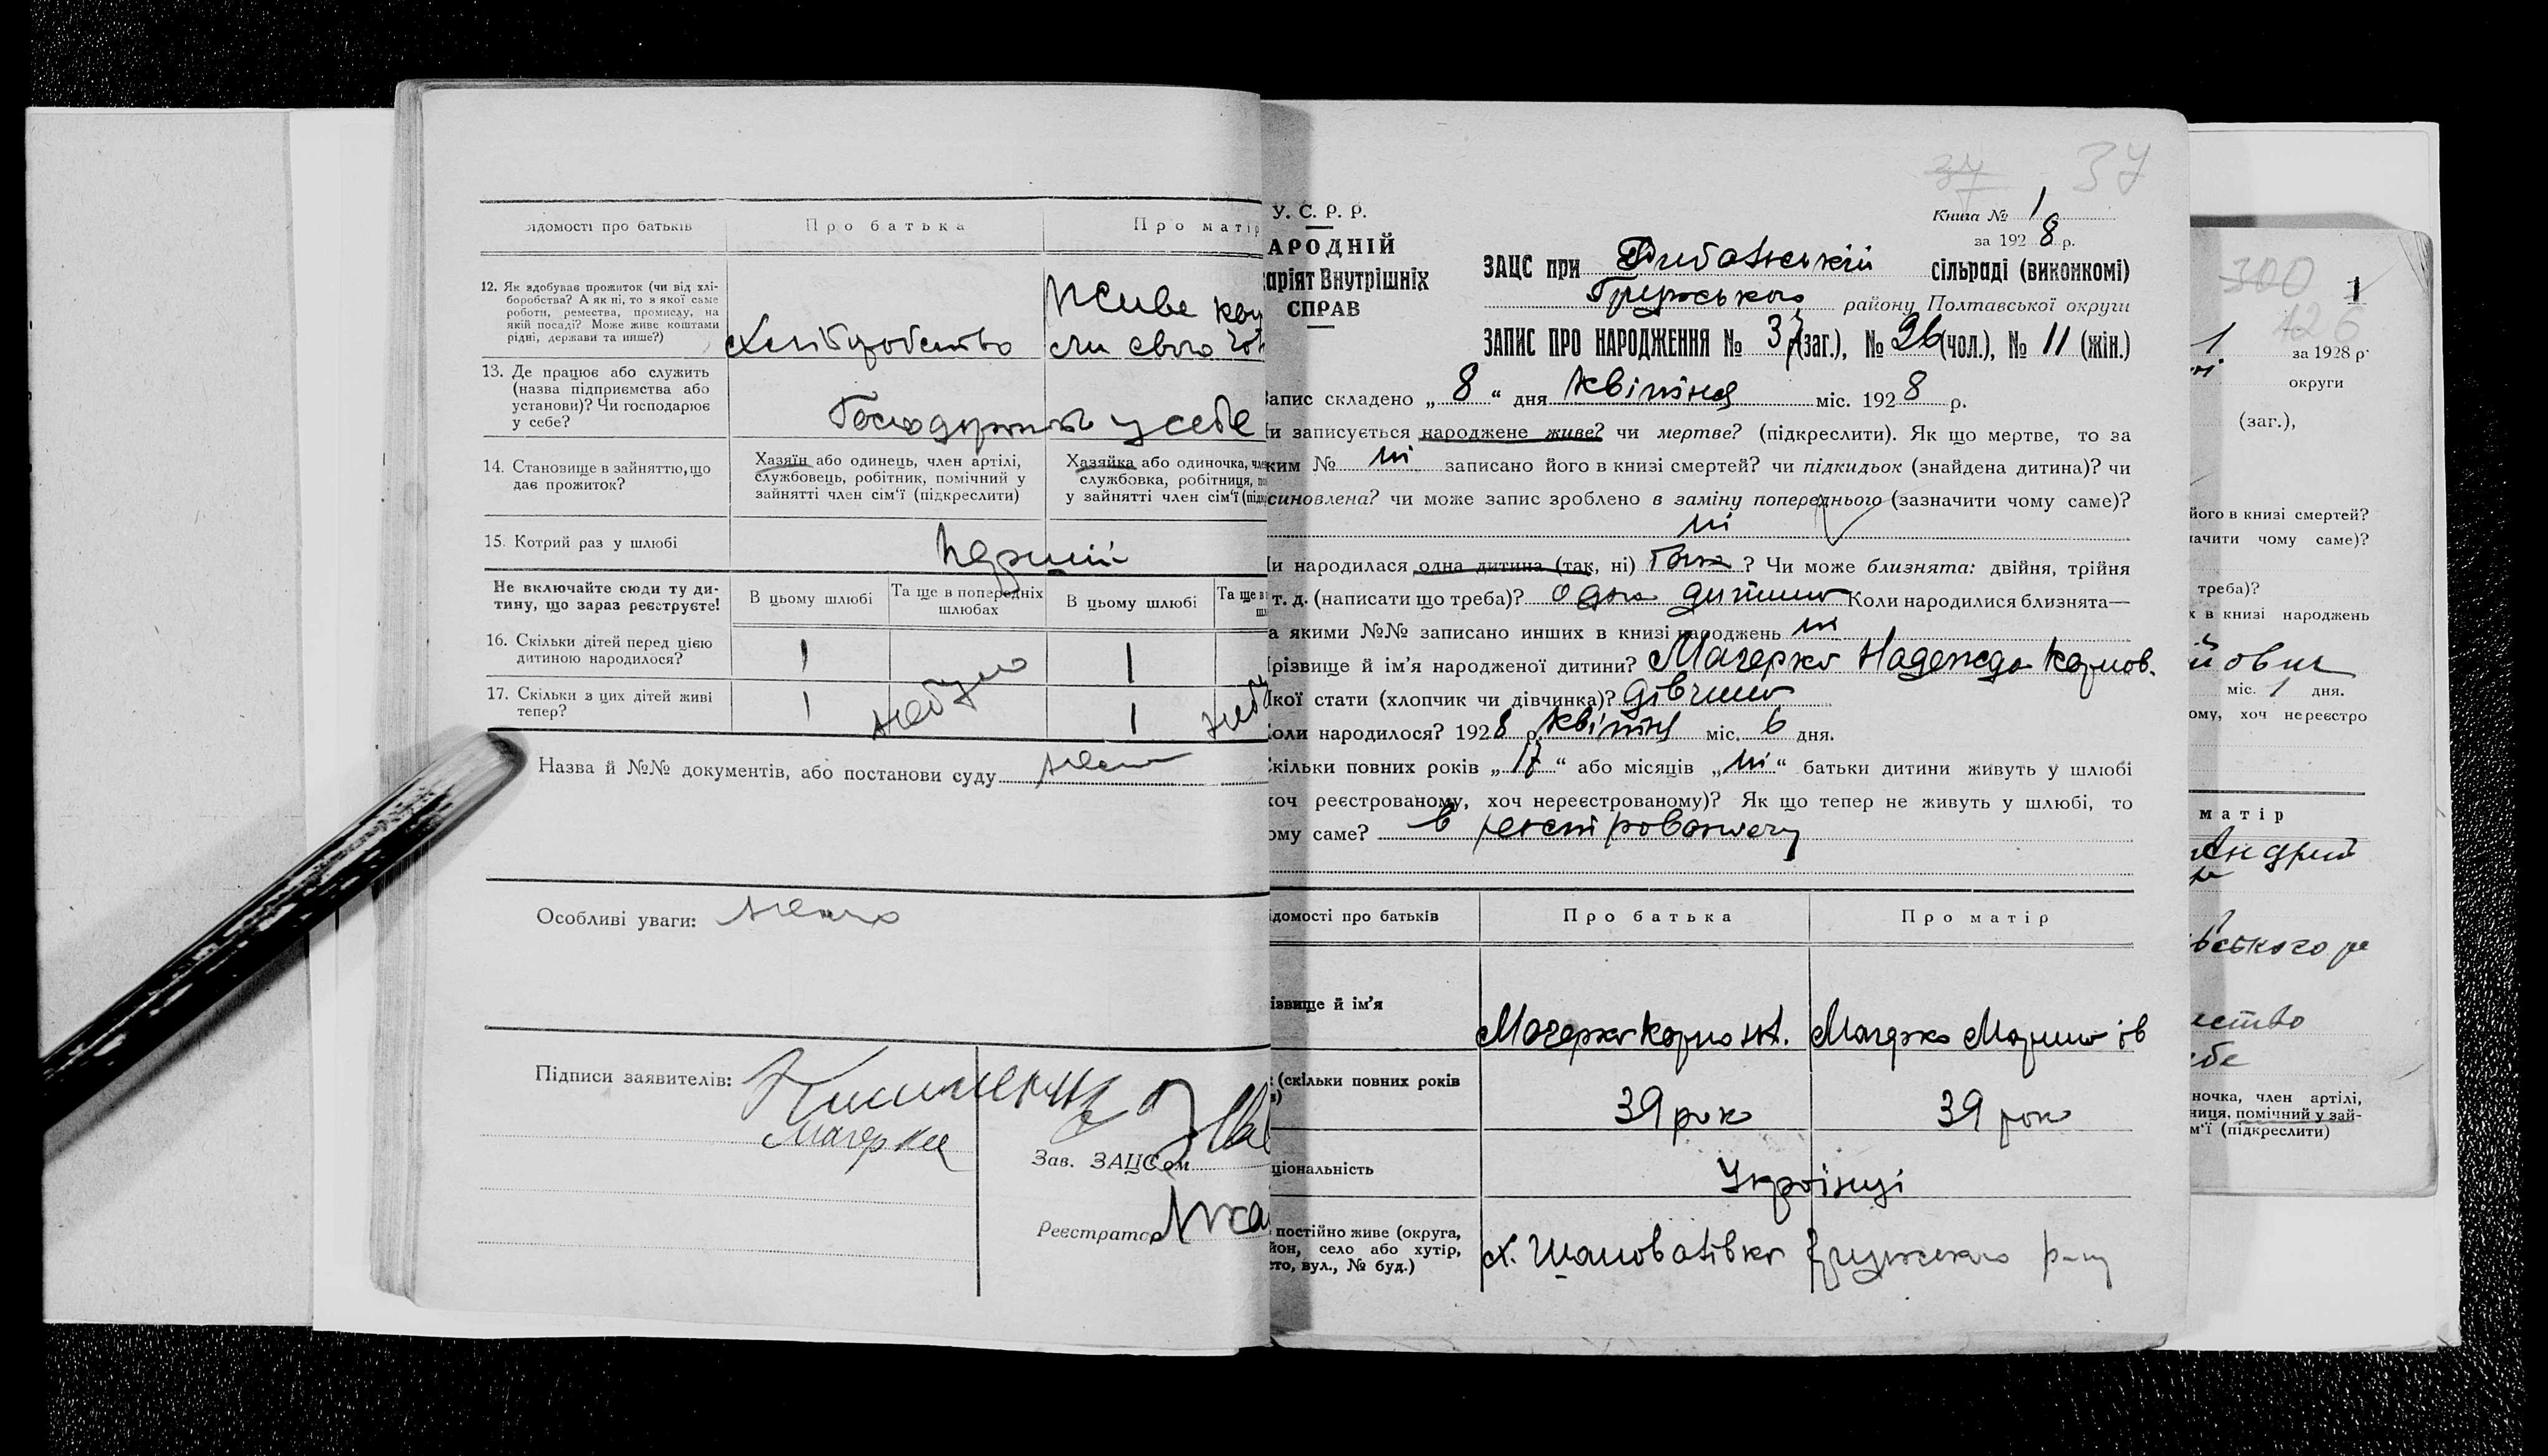 ідомості про батьків
Про батька
Про матір
12. Як здобуває прожиток (чи від хлі-
боробства? А як ні, то з якої саме
роботи, ремества, промислу, на
якій посаді? Може живе коштами
рідні, держави та инше?)
Хліборобство
Живе кош
ми свого чол
13. Де працює або служить
(назва підприємства або
установи)? Чи господарює
у себе?
у себе
14. Становище в зайняттю, що
дає прожиток?
Хазяїн або одинець, член артілі,
службовець, робітник, помічний у
зайнятті член сім'ї (підкреслити)
Хазяйка або одиночка, член
службовка, робітниця, по
у зайнятті член сім'ї (підк
15. Котрий раз у шлюбі
Перший
Не включайте сюди ту ди-
тину, що зараз реєструєте!
В цьому шлюбі
Та ще в попередніх
шлюбах
В цьому шлюбі
Та ще в
16. Скільки дітей перед цією
дитиною народилося?
1
1
17. Скільки з цих дітей живі
тепер?
1
небуло
1
Назва й №№ документів, або постанови суду
Особливі уваги:
Підписи заявителів:
Магерка
Зав. ЗАЦСом
Реєстратор
37 37
У. С. Р. Р.
АРОДНІЙ
аріят Внутрішніх
СПРАВ
Книга № 1
за 1928 р.
ЗАЦС при сільраді (виконкомі)
району Полтавської округи
ЗАПИС ПРО НАРОДЖЕННЯ № 37 (заг.), № 26 (чол.), № 11 (жін.)
Запис складено „ 8 “ дня квітня міс. 1928 р.
и записується народжене живе? чи мертве? (підкреслити). Як що мертве, то за
ким № ні записано його в книзі смертей? чи підкидьок (знайдена дитина)? чи
синовлена? чи може запис зроблено в заміну попереднього (зазначити чому саме)?
ні
и народилася одна дитина (так, ні) так ? Чи може близнята: двійня, трійня
т. д. (написати що треба)? одна дитина Коли народилися близнята—
а якими №№ записано инших в книзі народжень ні
різвище й ім'я народженої дитини? Магерка Надежда Карпов.
кої стати (хлопчик чи дівчинка)? дівчина
оли народилось? 1928 р. квітня міс. 6 дня.
кільки повних років „ 17 “ або місяців „ ні “ батьки дитини живуть у шлюбі
хоч реєстрованому, хоч нереєстрованому)? Як що тепер не живуть у шлюбі, то
ому саме? в
ідомості про батьків
Про батька
Про матір
ізвище й ім'я
Магерка Карпо
Магерка Марина
(скільки повних років
39 рок
39 рок
ціональність
Українці
постійно живе (округа,
йон, село або хутір,
сто, вул., № буд.)
х. Шаповалівка р-ну
300
1
126
1
за 1928 р.
округи
(заг.),
його в книзі смертей?
ачити чому саме)?
треба)?
х в книзі народжень
міс. 1 дня.
ому, хоч нереєстро
матір
ського
ство
себе
ночка, член артілі,
ниця, помічний у зай-
м'ї (підкреслити)